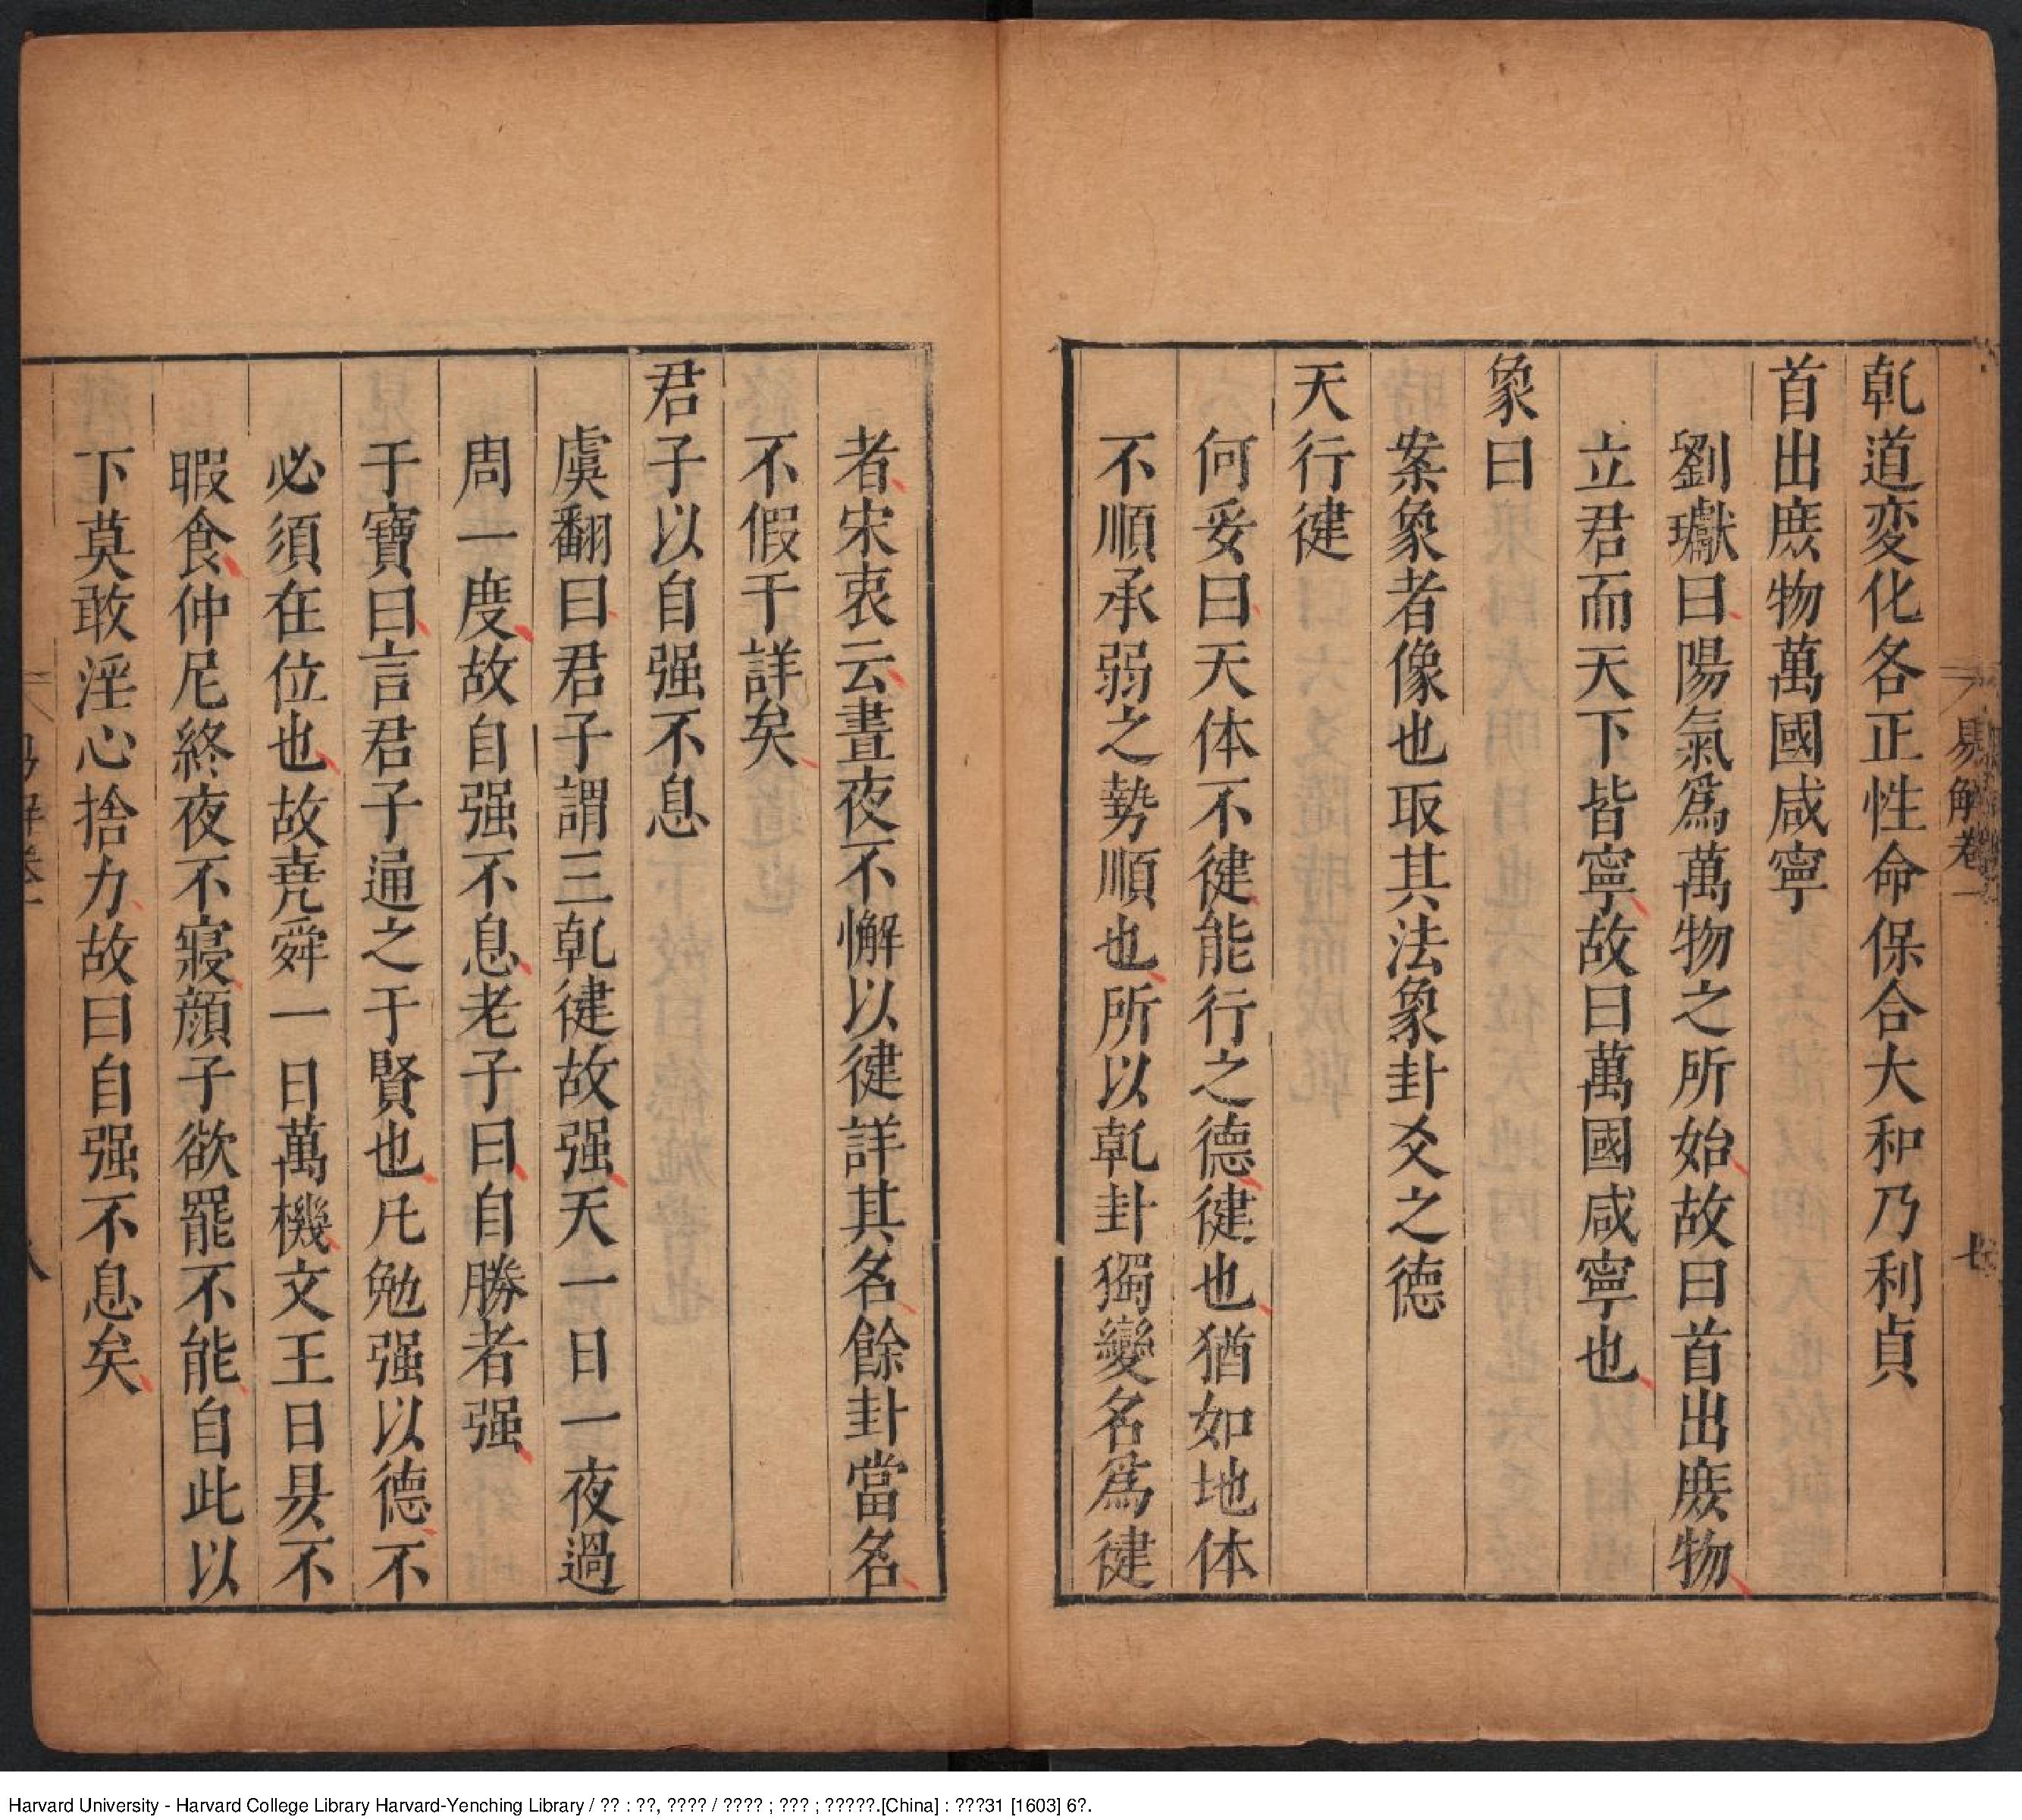 乹道変化各正性命保合大和乃利貞
首出庻物萬國咸寧
劉瓛曰陽氣爲萬物之所始故曰首出庻物
立君而天下皆寧故曰萬國咸寧也
象曰
案象者像也取其法象卦爻之德
天行徤
何妥曰天体不徤能行之德徤也猶如地体
不順承弱之勢順也所以乹卦獨變名爲徤
易解卷一
七
者宋衷云晝夜不懈以徤詳其名餘卦當名
不假于詳矣
君子以自强不息
虞翻曰君子謂三乹徤故强天一日一夜過
周一度故自强不息老子曰自勝者强
于寶曰言君子通之于賢也凡勉强以德不
必須在位也故尭舜一日萬機文王日昃不
暇食仲尼終夜不寝顔子欲罷不能自此以
下莫敢淫心捨力故曰自强不息矣
八
Harvard University - Harvard College Library Harvard-Yenching Library / ?? : ??, ???? / ???? ; ??? ; ?????.[China] : ???31 [1603] 6?.